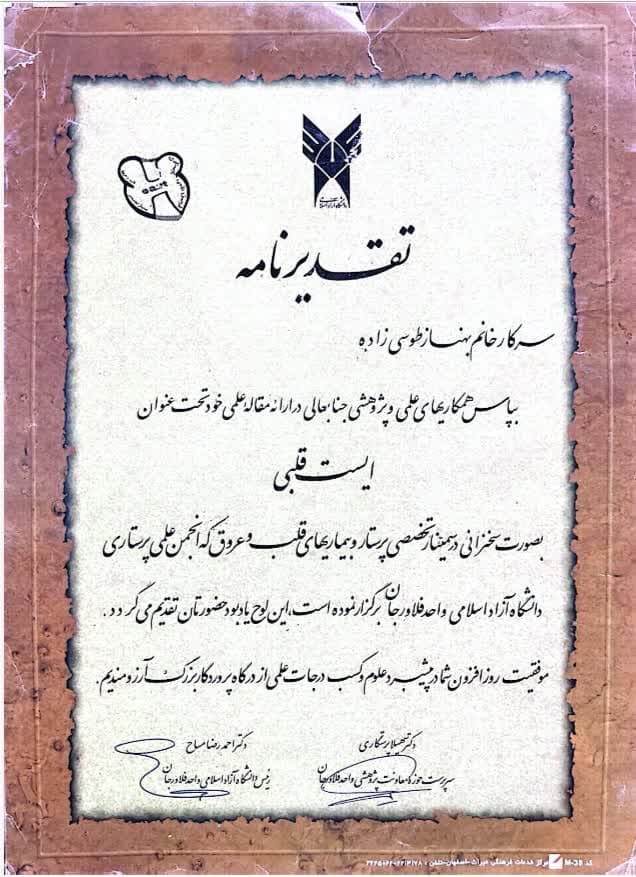 دانشگاه آزاد اسلامی
تقدیرنامه
سرکار خانم بهناز طوسی زاده
بپاس همکاریهای علمی و پژوهشی جنابعالی در ارائه مقاله علمی خود تحت عنوان
ایست قلبی
بصورت سخنرانی در سمینار تخصصی پرستار و بیماریهای قلب و عروق که انجمن علمی پرستاری
دانشگاه آزاد اسلامی واحد فلاورجان برگزار نموده است، این لوح یادبود حضورتان تقدیم می گردد.
موفقیت روزافزون شما در پیشبرد علوم و کسب درجات علمی از درگاه پروردگار بزرگ آرزومندیم.
دکتر سهیلا پرستگاری
سرپرست حوزه معاونت پژوهشی واحد فلاورجان
دکتر احمدرضا مساح
رئیس دانشگاه آزاد اسلامی واحد فلاورجان
کد M-38 مرکز خدمات فرهنگی میراث - اصفهان - تلفن: